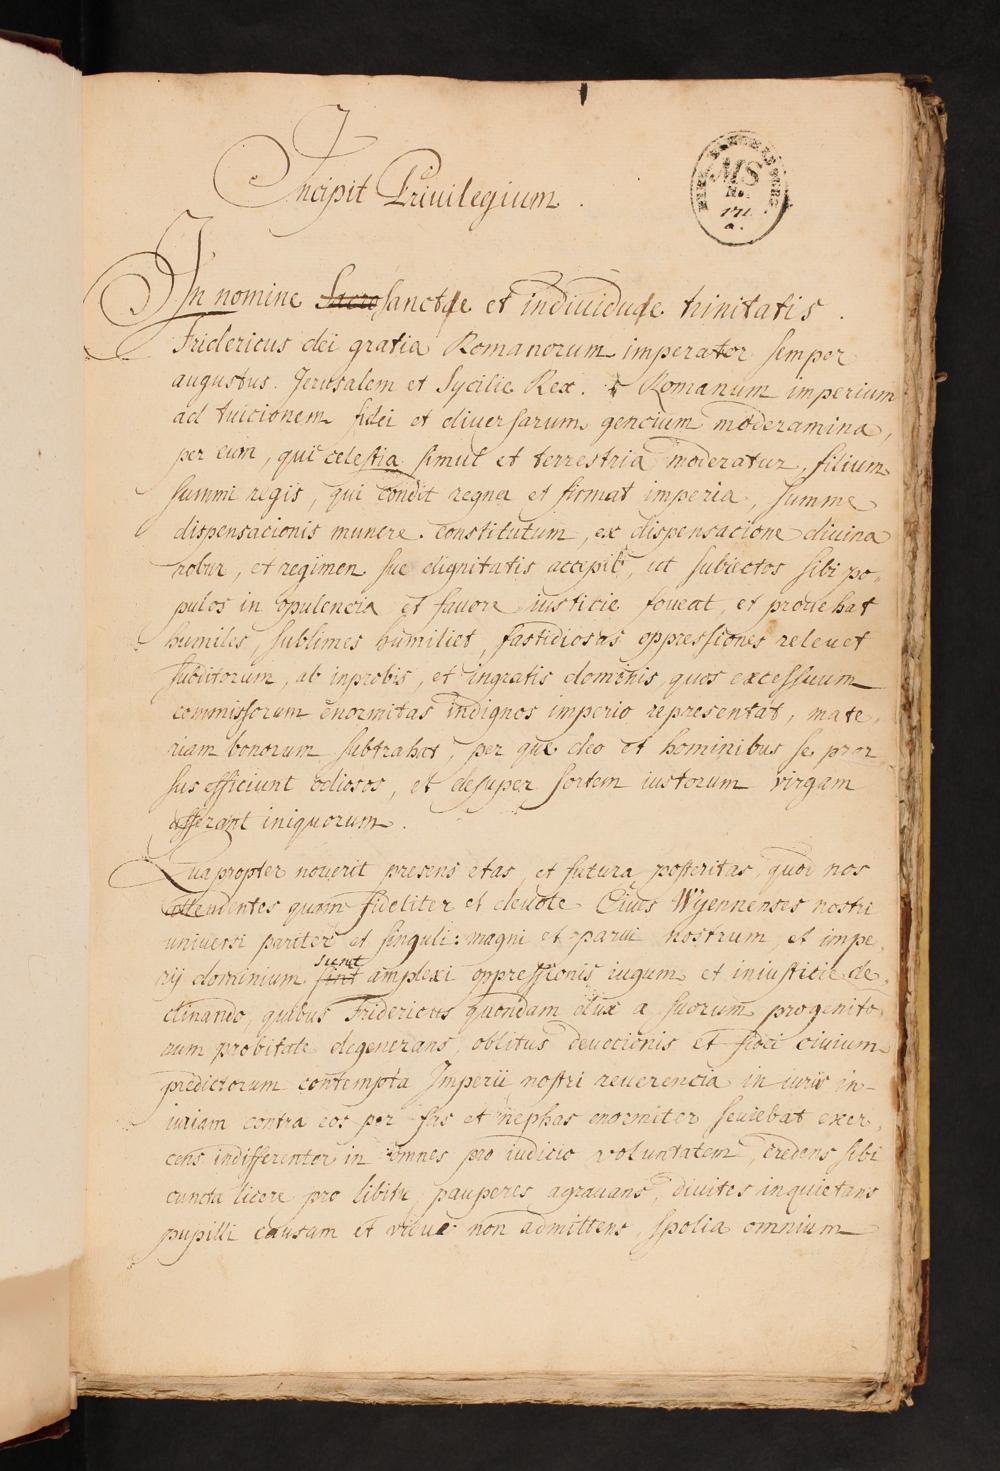 Incipit Priuilegium .
MS
In nomine Sacrosancte et indiuidue trinitatis .
Fridericus dei gratia Romanorum imperator semper
augustus . Jerusalem et Sycilie Rex . Romanum imperium
ad tuicionem fidei et diuersarum gencium moderamina,
per eum, qui celestia simul et terrestria moderatur, filium
summi regis, qui condit regna et firmat imperia, summe
dispensacionis munere . constitutum, ex dispensacione diuina
robur, et regimen sue dignitatis accepit, ut subiectos sibi po„
pulos in opulencia et fauore iusticie foueat, et prouehat
humiles, sublimes humiliet, fastidiosas oppressiones releuet
subditorum, ab inprobis, et ingratis quos excessuum
commissorum enormitas indignos imperio representat, mate„
riam bonorum subtrahat, per que deo et hominibus se pror
sus efficiunt odiosos, et desuper sortem iustorum virgam
afferant iniquorum .
Quapropter nouerit presens etas, et futura posteritas, quod nos
attendentes quam fideliter et deuote Ciues Wÿennenses nostri
uniuersi pariter et singuli: magni et parui nostrum, et impe„
rij dominium sint sicut amplexi oppressionis iugum et iniusticie de„
clinando, quibus Fridericus quondam dux a suorum progenito„
rum probitate degenerans, oblitus deuocionis et fidei ciuium
predictorum contempta Imperii nostri reuerencia in iuris in-
iuriam contra eos per fas et nephas enormiter seuiebat exer„
cens indifferenter in omnes pro iudicio voluntatem, credens sibi
cuncta licere pro libitu, pauperes agrauans, diuites inquietans
pupilli causam et vidue non admittens, spolia omnium